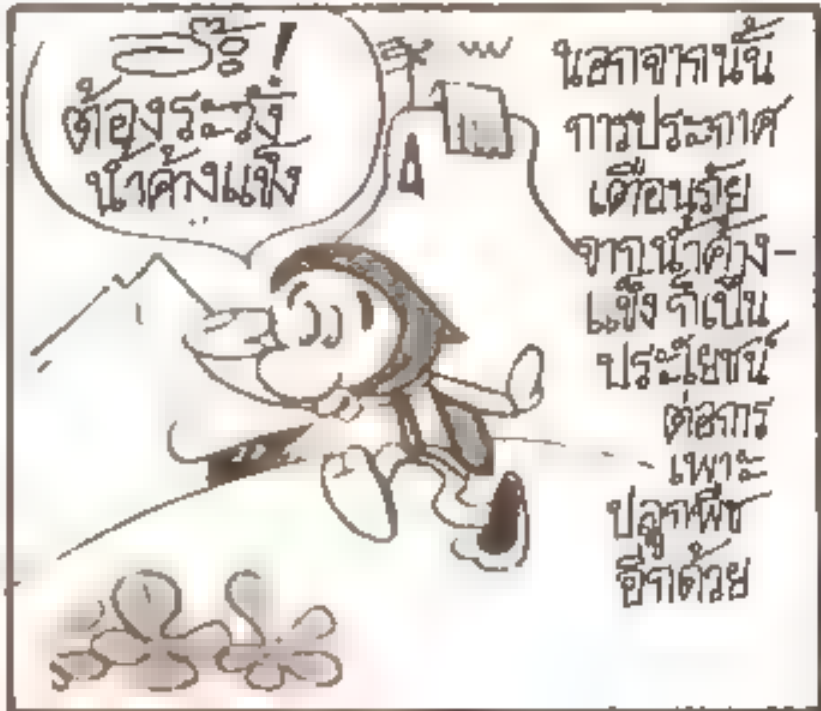 ต้องระวัง
น้ำค้างแข็ง
นอกจากนั้น
การประกาศ
เตือนภัย
จากน้ำค้าง-
แข็ง ก็เป็น
ประโยชน์
ต่อการ
เพาะ
ปลูกพืช
อีกด้วย